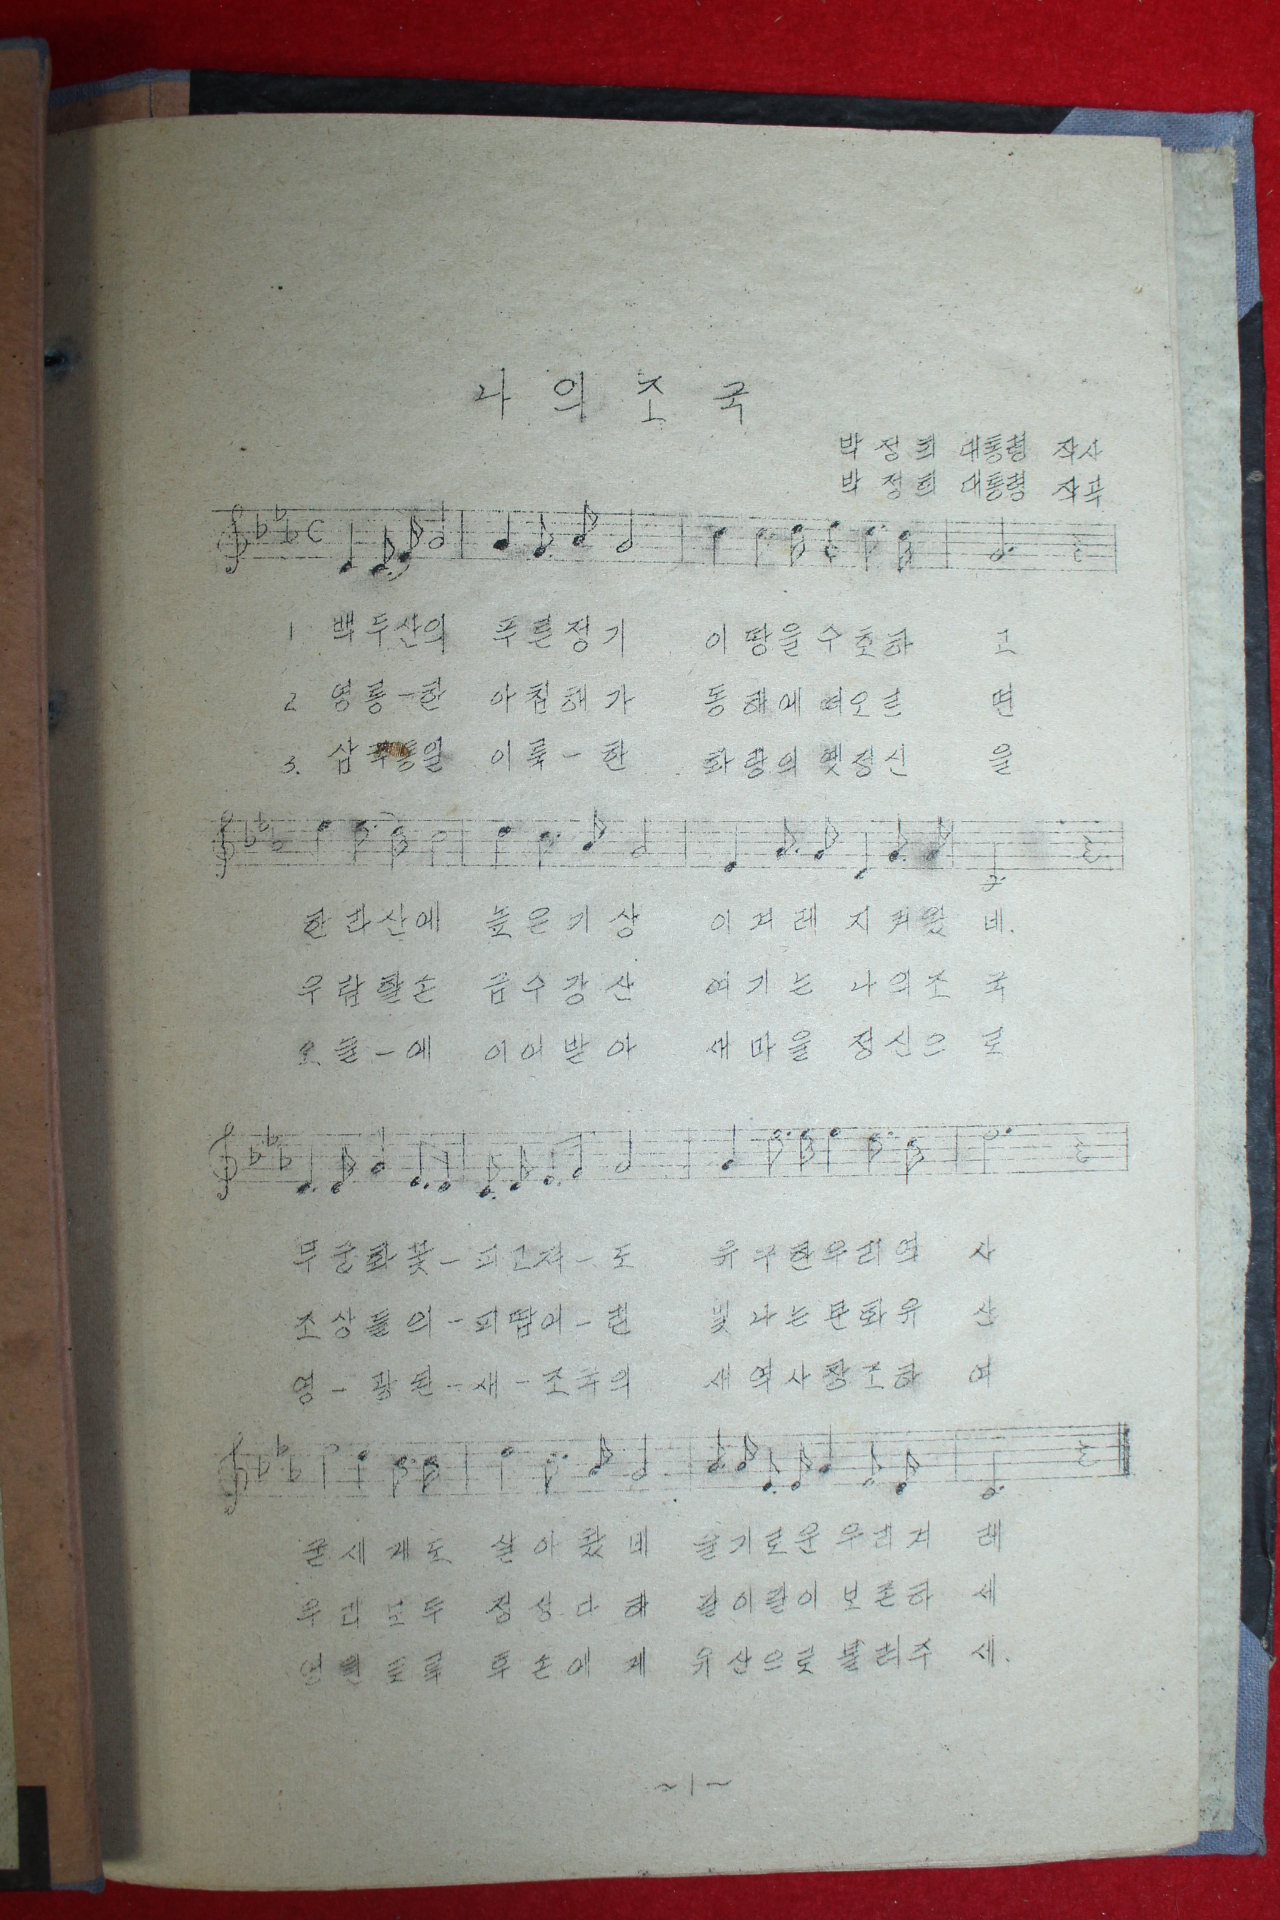 나의조국
박정희 대통령 작사
박정희 대통령 작곡
1 백두산의 푸른정기 이땅을수호하 고
2 영롱-한 아침해가 동해에떠오르 면
3. 삼국통일 이룩-한 화랑의옛정신 을
한라산에 높은기상 이겨레지켜왔 네.
우람할손 금수강산 여기는 나의조 국
오늘-에 이어받아 새마을 정신으 로
무궁화꽃-피고져-도 유구한우리역 사
조상들의-피땀이-린 빛나는문화유 산
영-광된-새-조국의 새역사창조하 여
굳세게도 살아왔네 슬기로운우리겨 레
우리모두 정성다해 길이길이 보존하 세
영원토록 후손에게 유산으로 물려주 세.
~1~